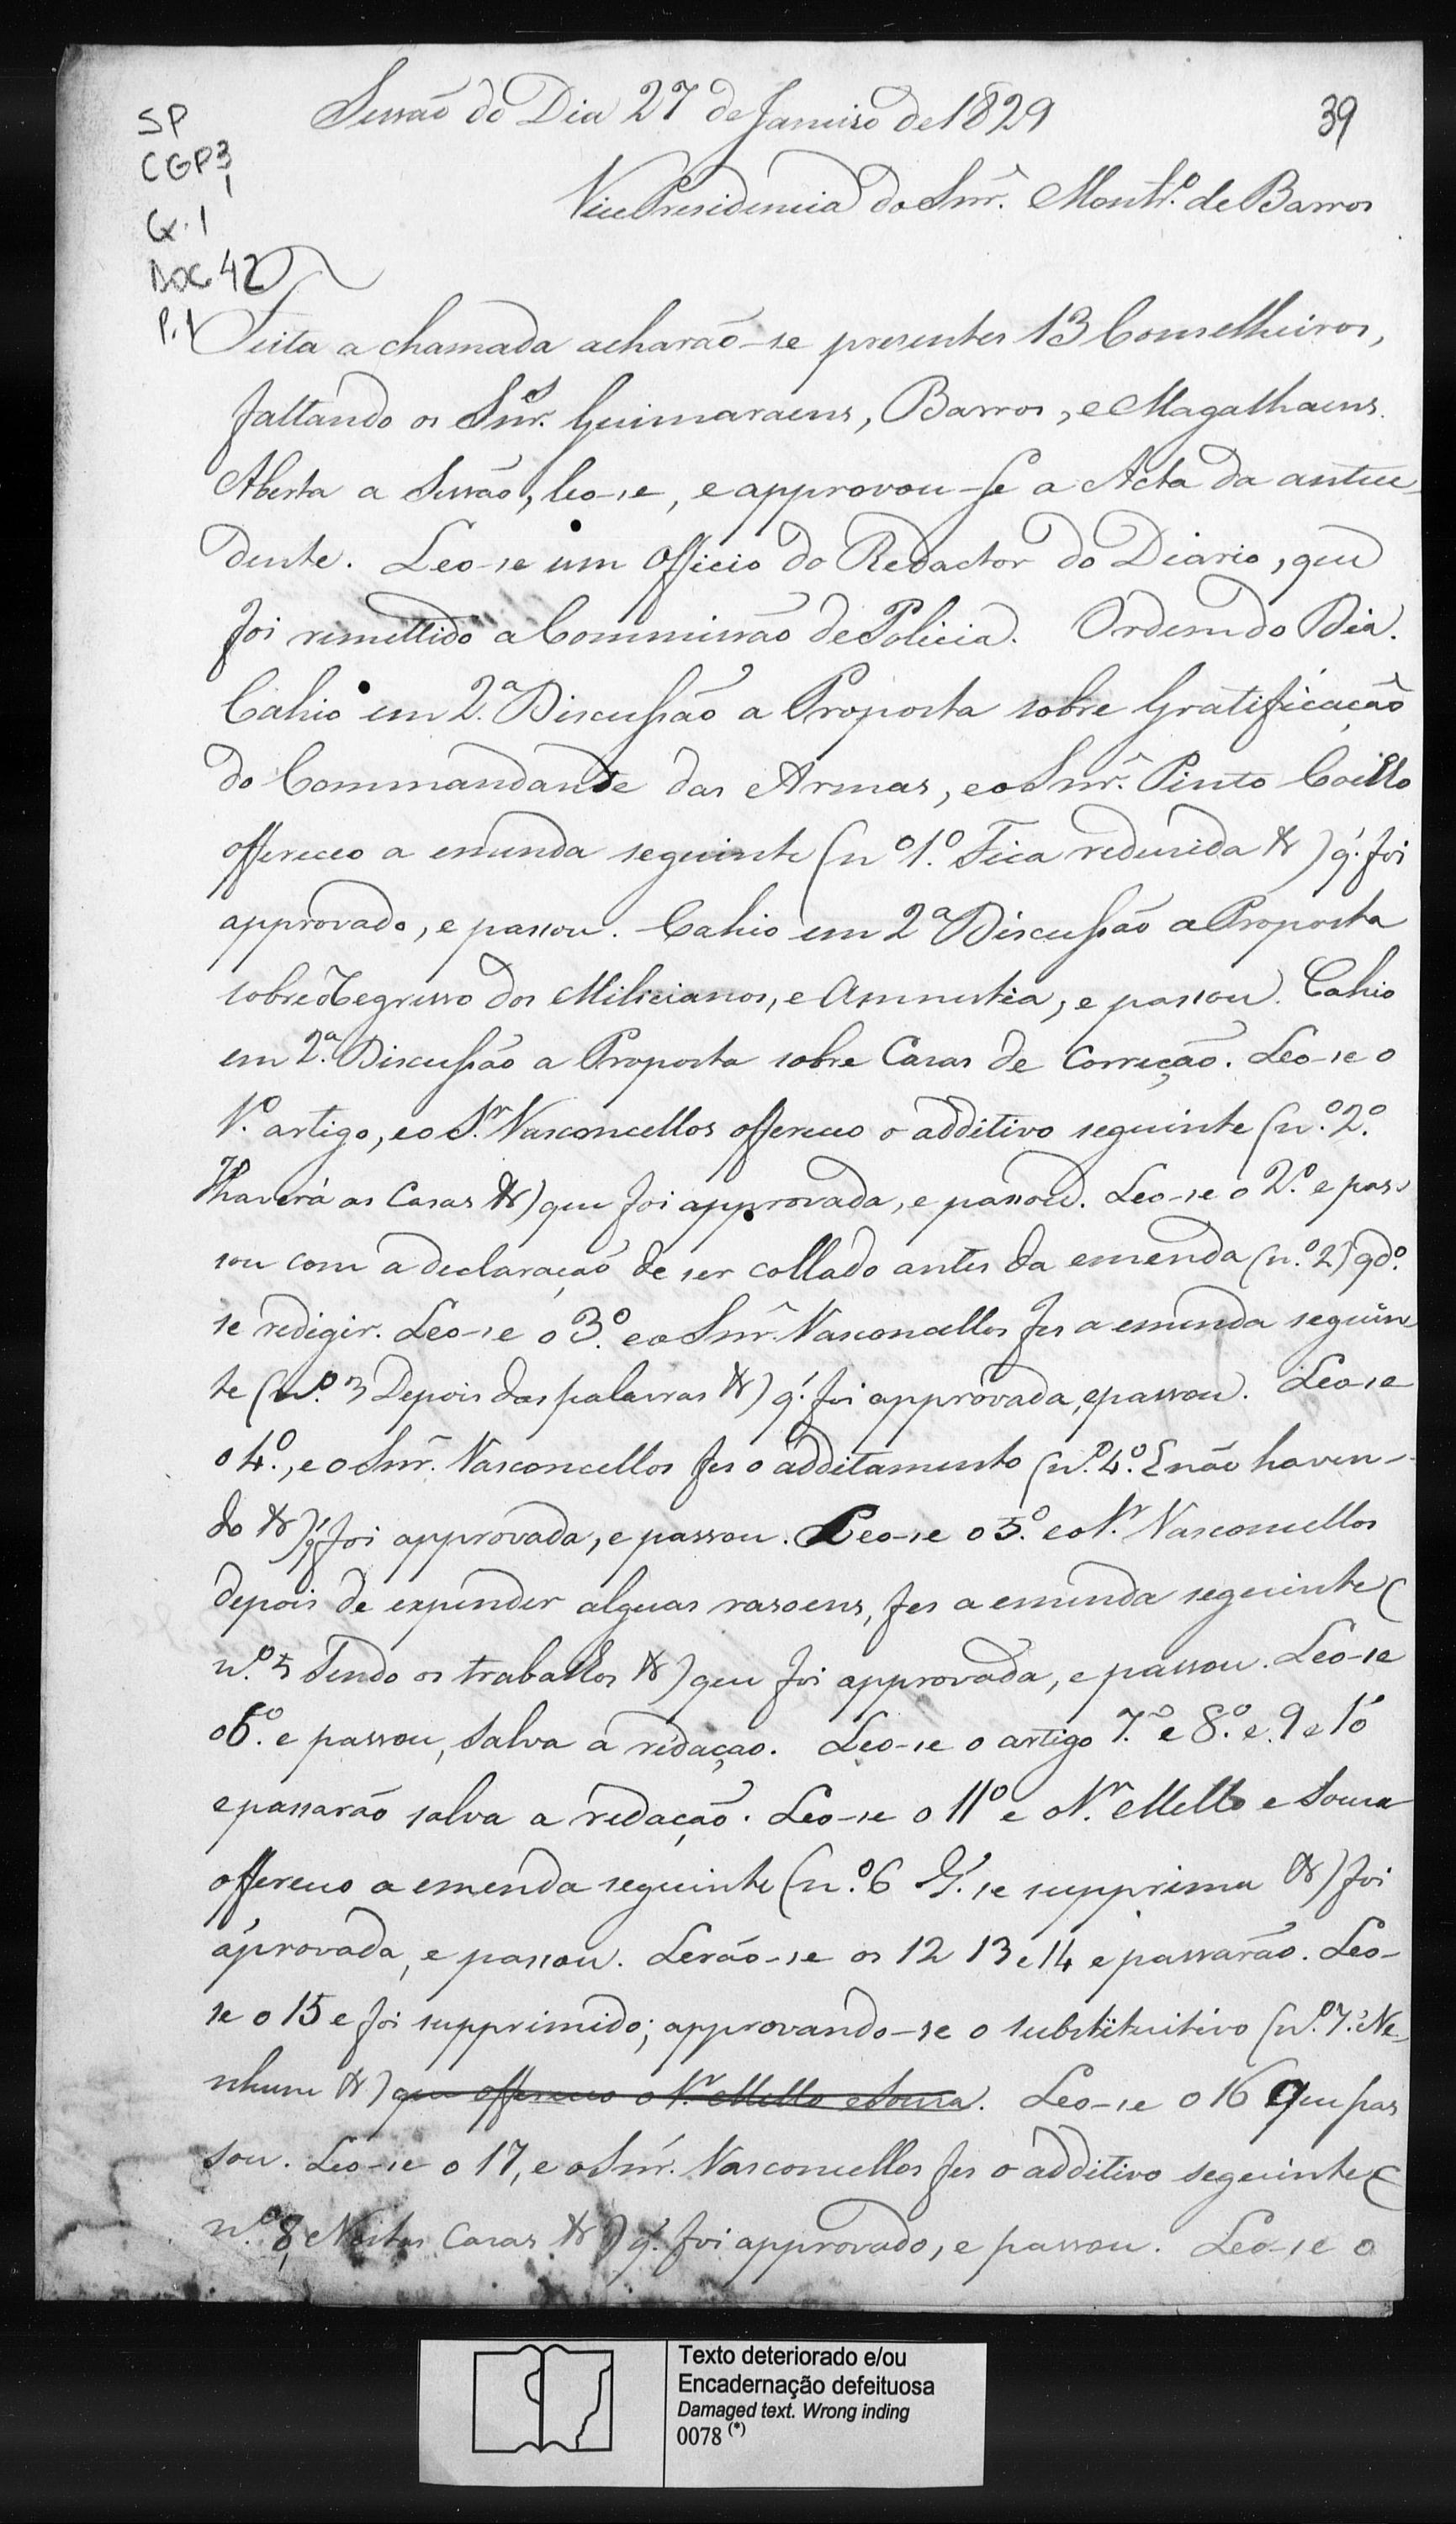 Sessão do Dia 27 de Janeiro de 1829
39
SP
CGP3
1
Cx. 1
Doc 42
P. 1
Vice Presidencia do Snr. Montr.º de Barros
Feita a chamada acharão-se presentes 13 Conselheiros,
faltando os Snr.es Guimaraens, Barros, e Magalhaens.
Aberta a Sessão, leo-se, e approvou-se a Acta da antece-
dente. Leo-se um Officio do Redactor do Diario, que
foi remettido a Commissão de Policia. Ordem do Dia.
Cahio em 2.ª Discussão a Proposta sobre Gratificação
do Commandante das Armas, e o Snr. Pinto Coelho
offereceo a emenda seguinte (nº 1.º Fica redusida &) q.' foi
approvado, e passou. Cahio em 2ª Discussão a Proposta
sobre o Regresso dos Milicianos, e Amnestia, e passou. Cahio
em 2.ª Discussão a Proposta sobre Casas de Correcção. Leo-se o
1.º artigo, e o Sr. Vasconcellos offereceo o additivo seguinte (n.º 2.º
Haverá as Casas &) que foi approvada, e passou. Leo-se o 2.º e pas-
sou com a declaração de ser collado antes da emenda (n.º 2) qdº.
se redigir. Leo-se o 3.º e o Snr. Vasconcellos fes a emenda seguin
te (n.º 3 Depois das palavras &) q.' foi approvada, e passou. Leo-se
o 4.º, e o Snr. Vasconcellos fes o additamento (n.º 4.º E não haven-
do &) q' foi approvada, e passou. Leo-se o 5.º e o Sr. Vasconcellos
depois de expender alguas rasoens, fes a emenda seguinte (
n.º 5 Sendo os trabalhos &) que foi approvada, e passou. Leo-se
o 6.º e passou, salva a redação. Leo-se o artigo 7.º e 8.º e 9 e 10
e passarão salva a redação. Leo-se o 11º e o Sr. Mello e Sousa
offereceo a emenda seguinte (n.º 6 Q.' se supprima &) foi
aprovada, e passou. Lerão-se os 12 13 e 14 e passarão. Leo-
se o 15 e foi supprimido; approvando-se o substituitivo (n.º 7.º Ne-
nhum &) que offereceo o Sr. Mello e Sousa. Leo-se o 16 que pas
sou. Leo-se o 17, e o Snr. Vasconcellos fes o additivo seguinte (
n.º 8, Nestas Casas &) q.' foi approvado, e passou. Leo-se o
Texto deteriorado e/ou
Encadernação defeituosa
Damaged text. Wrong inding
0078 (*)